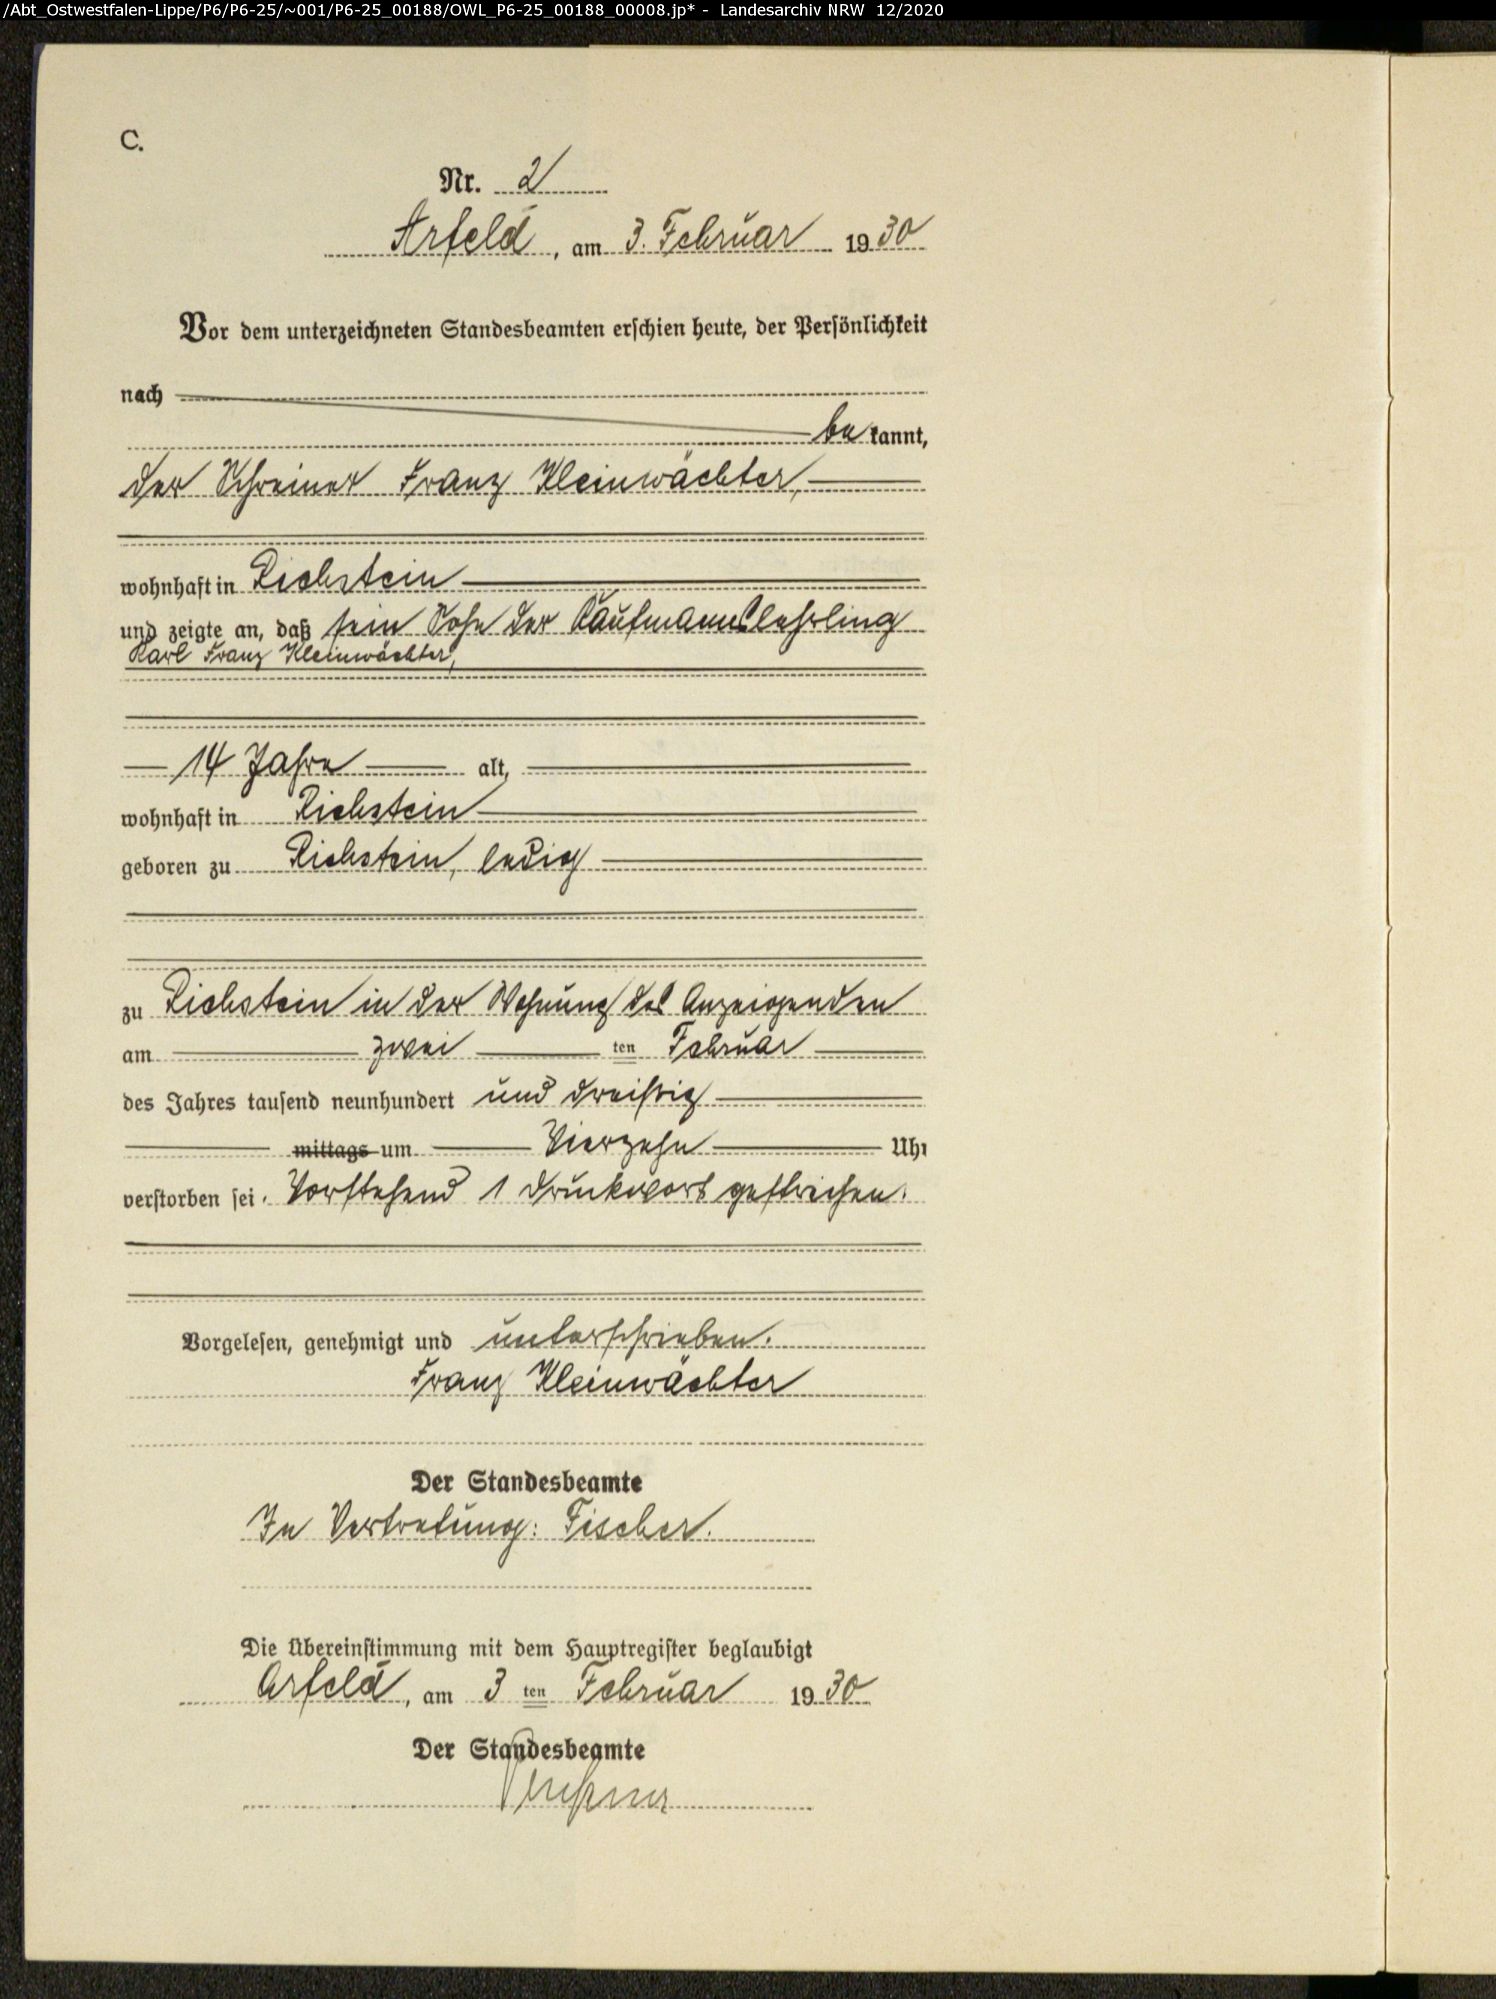 /Abt_Ostwestfalen-Lippe/P6/P6-25/~001/P6-25_00188/OWL_P6-25_00188_00008.jp* - Landesarchiv NRW 12/2020
C.
Nr. 2
Arfeld, am 3. Februar 1930
Vor dem unterzeichneten Standesbeamten erschien heute, der Persönlichkeit
nach
bekannt,
der Schreiner Franz Kleinwächter,
wohnhaft in Richstein
und zeigte an, daß sein Sohn der Kaufmannslehrling
Karl Franz Kleinwächter,
14 Jahre alt,
wohnhaft in Richstein
geboren zu Richstein, ledig
zu Richstein in der Wohnung des Anzeigenden
am zwei ten Februar
des Jahres tausend neunhundert und dreißig
mittags um Vierzehn Uhr
verstorben sei. Vorstehend 1 Druckwort gestrichen.
Vorgelesen, genehmigt und unterschrieben.
Franz Kleinwächter
Der Standesbeamte
In Vertretung: Fischer.
Die Übereinstimmung mit dem Hauptregister beglaubigt
Arfeld, am 3 ten Februar 1930
Der Standesbeamte